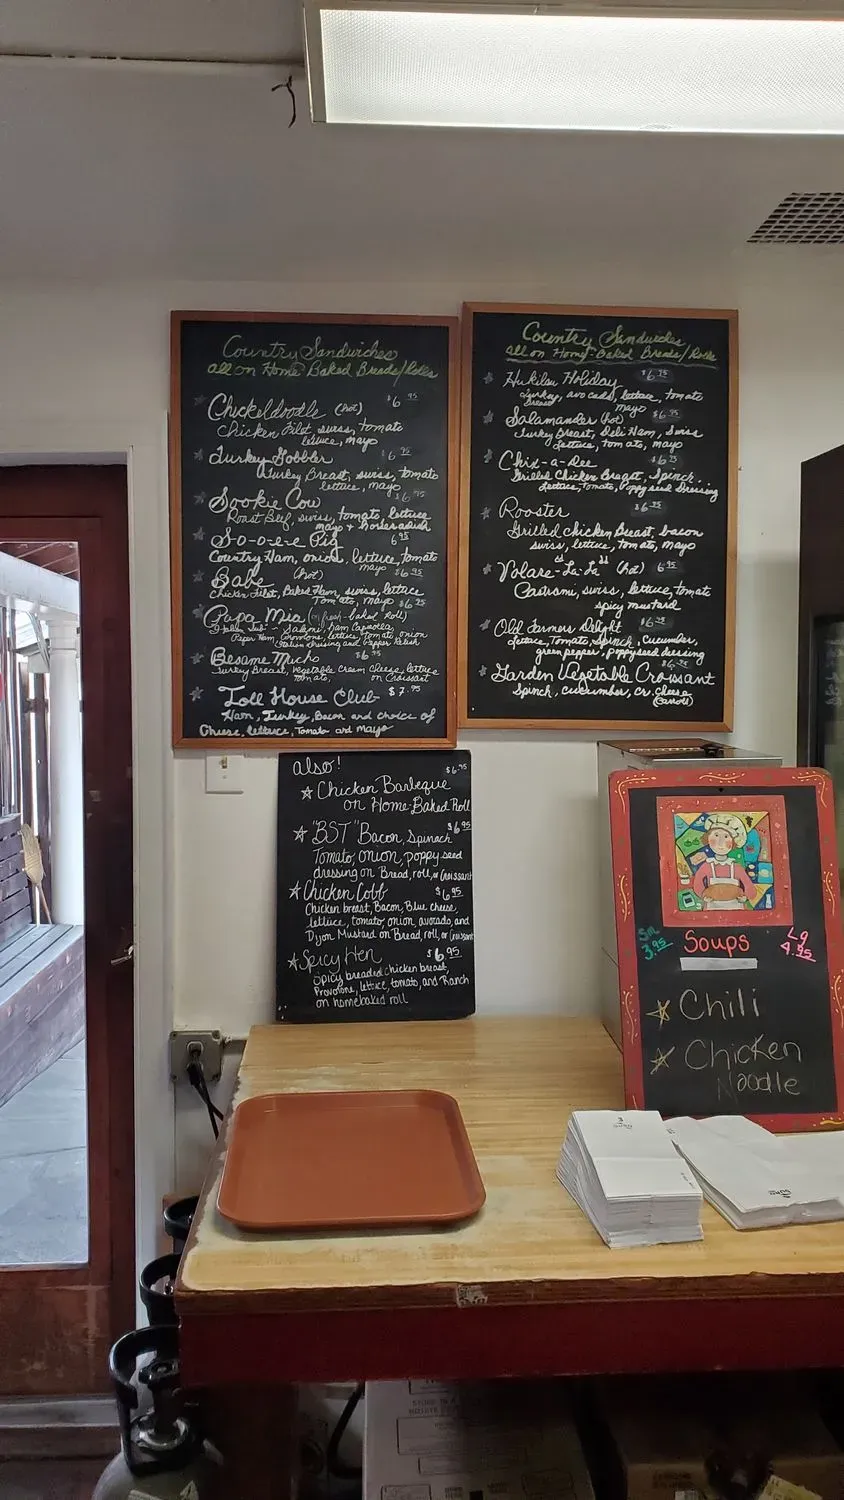 Country Sandwiches
all on Home Baked Breads/Rolls
Chickeldoodle (hot) $6.95
Chicken Filet swiss, tomato
lettuce, mayo
Turkey Gobbler $6.95
Turkey Breast, swiss, tomato
lettuce, mayo
Sookie Cow $6.95
Roast Beef, swiss, tomato, lettuce
mayo + horseradish
S-o-o-e-e Pig 6.95
Country Ham, onion, lettuce, tomato
mayo
Babe (hot) $6.95
Chicken Filet, Baked Ham, swiss, lettuce
Tomato, mayo
Papa Mia (on fresh-baked Roll) $6.95
Italian Sub - Salami, Ham Capicolla
Pepper Ham, Provolone, lettuce, tomato, onion
Italian Dressing and Pepper Relish
Besame Mucho $6.95
Turkey Breast, Vegetable Cream Cheese, lettuce
tomato, on Croissant
Toll House Club $7.95
Ham, Turkey, Bacon and choice of
Cheese, lettuce, Tomato and mayo
Country Sandwiches
all on Home-Baked Breads/Rolls
Hukilau Holiday $6.95
Turkey, avocado, lettuce, tomato
Breast mayo
Salamander (hot) $6.95
Turkey Breast, Deli Ham, Swiss
lettuce, tomato, mayo
Chix-a-Dee $6.95
Grilled Chicken Breast, Spinch
lettuce, Tomato, Poppy seed Dressing
Rooster $6.95
Grilled chicken Breast, bacon
swiss, lettuce, tomato, mayo
"Volare-La-La" (hot) 6.95
Pastrami, swiss, lettuce, tomato
spicy mustard
Old Farmers Delight $6.95
Lettuce, Tomato, Spinch, Cucumber,
green pepper, poppyseed dressing
Garden Vegetable Croissant
Spinch, cucumber, cr. cheese
(Carrot)
also! $6.95
Chicken Barbeque
on Home-Baked Roll
"BST" Bacon, Spinach $6.95
Tomato, onion, poppy seed
dressing on Bread, roll, or Croissant
Chicken Cobb $6.95
Chicken breast, Bacon, Blue cheese,
lettuce, tomato, onion, avocado, and
Dijon Mustard on Bread, roll, or Croissant
Spicy Hen $6.95
Spicy breaded chicken breast,
Provolone, lettice, tomato, and Ranch
on homebaked roll
Sm 3.95
Soups
Lg 4.95
Chili
Chicken
Noodle